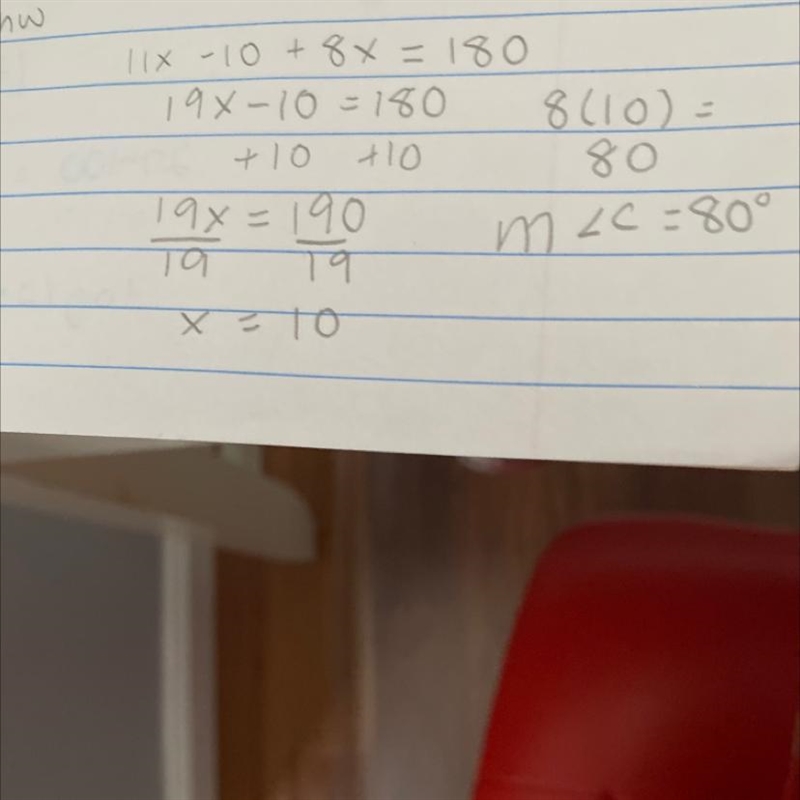 hw
11x - 10 + 8x = 180
19x - 10 = 180
+10 +10
19x = 190
19 19
x = 10
8(10) =
80
m∠C = 80°